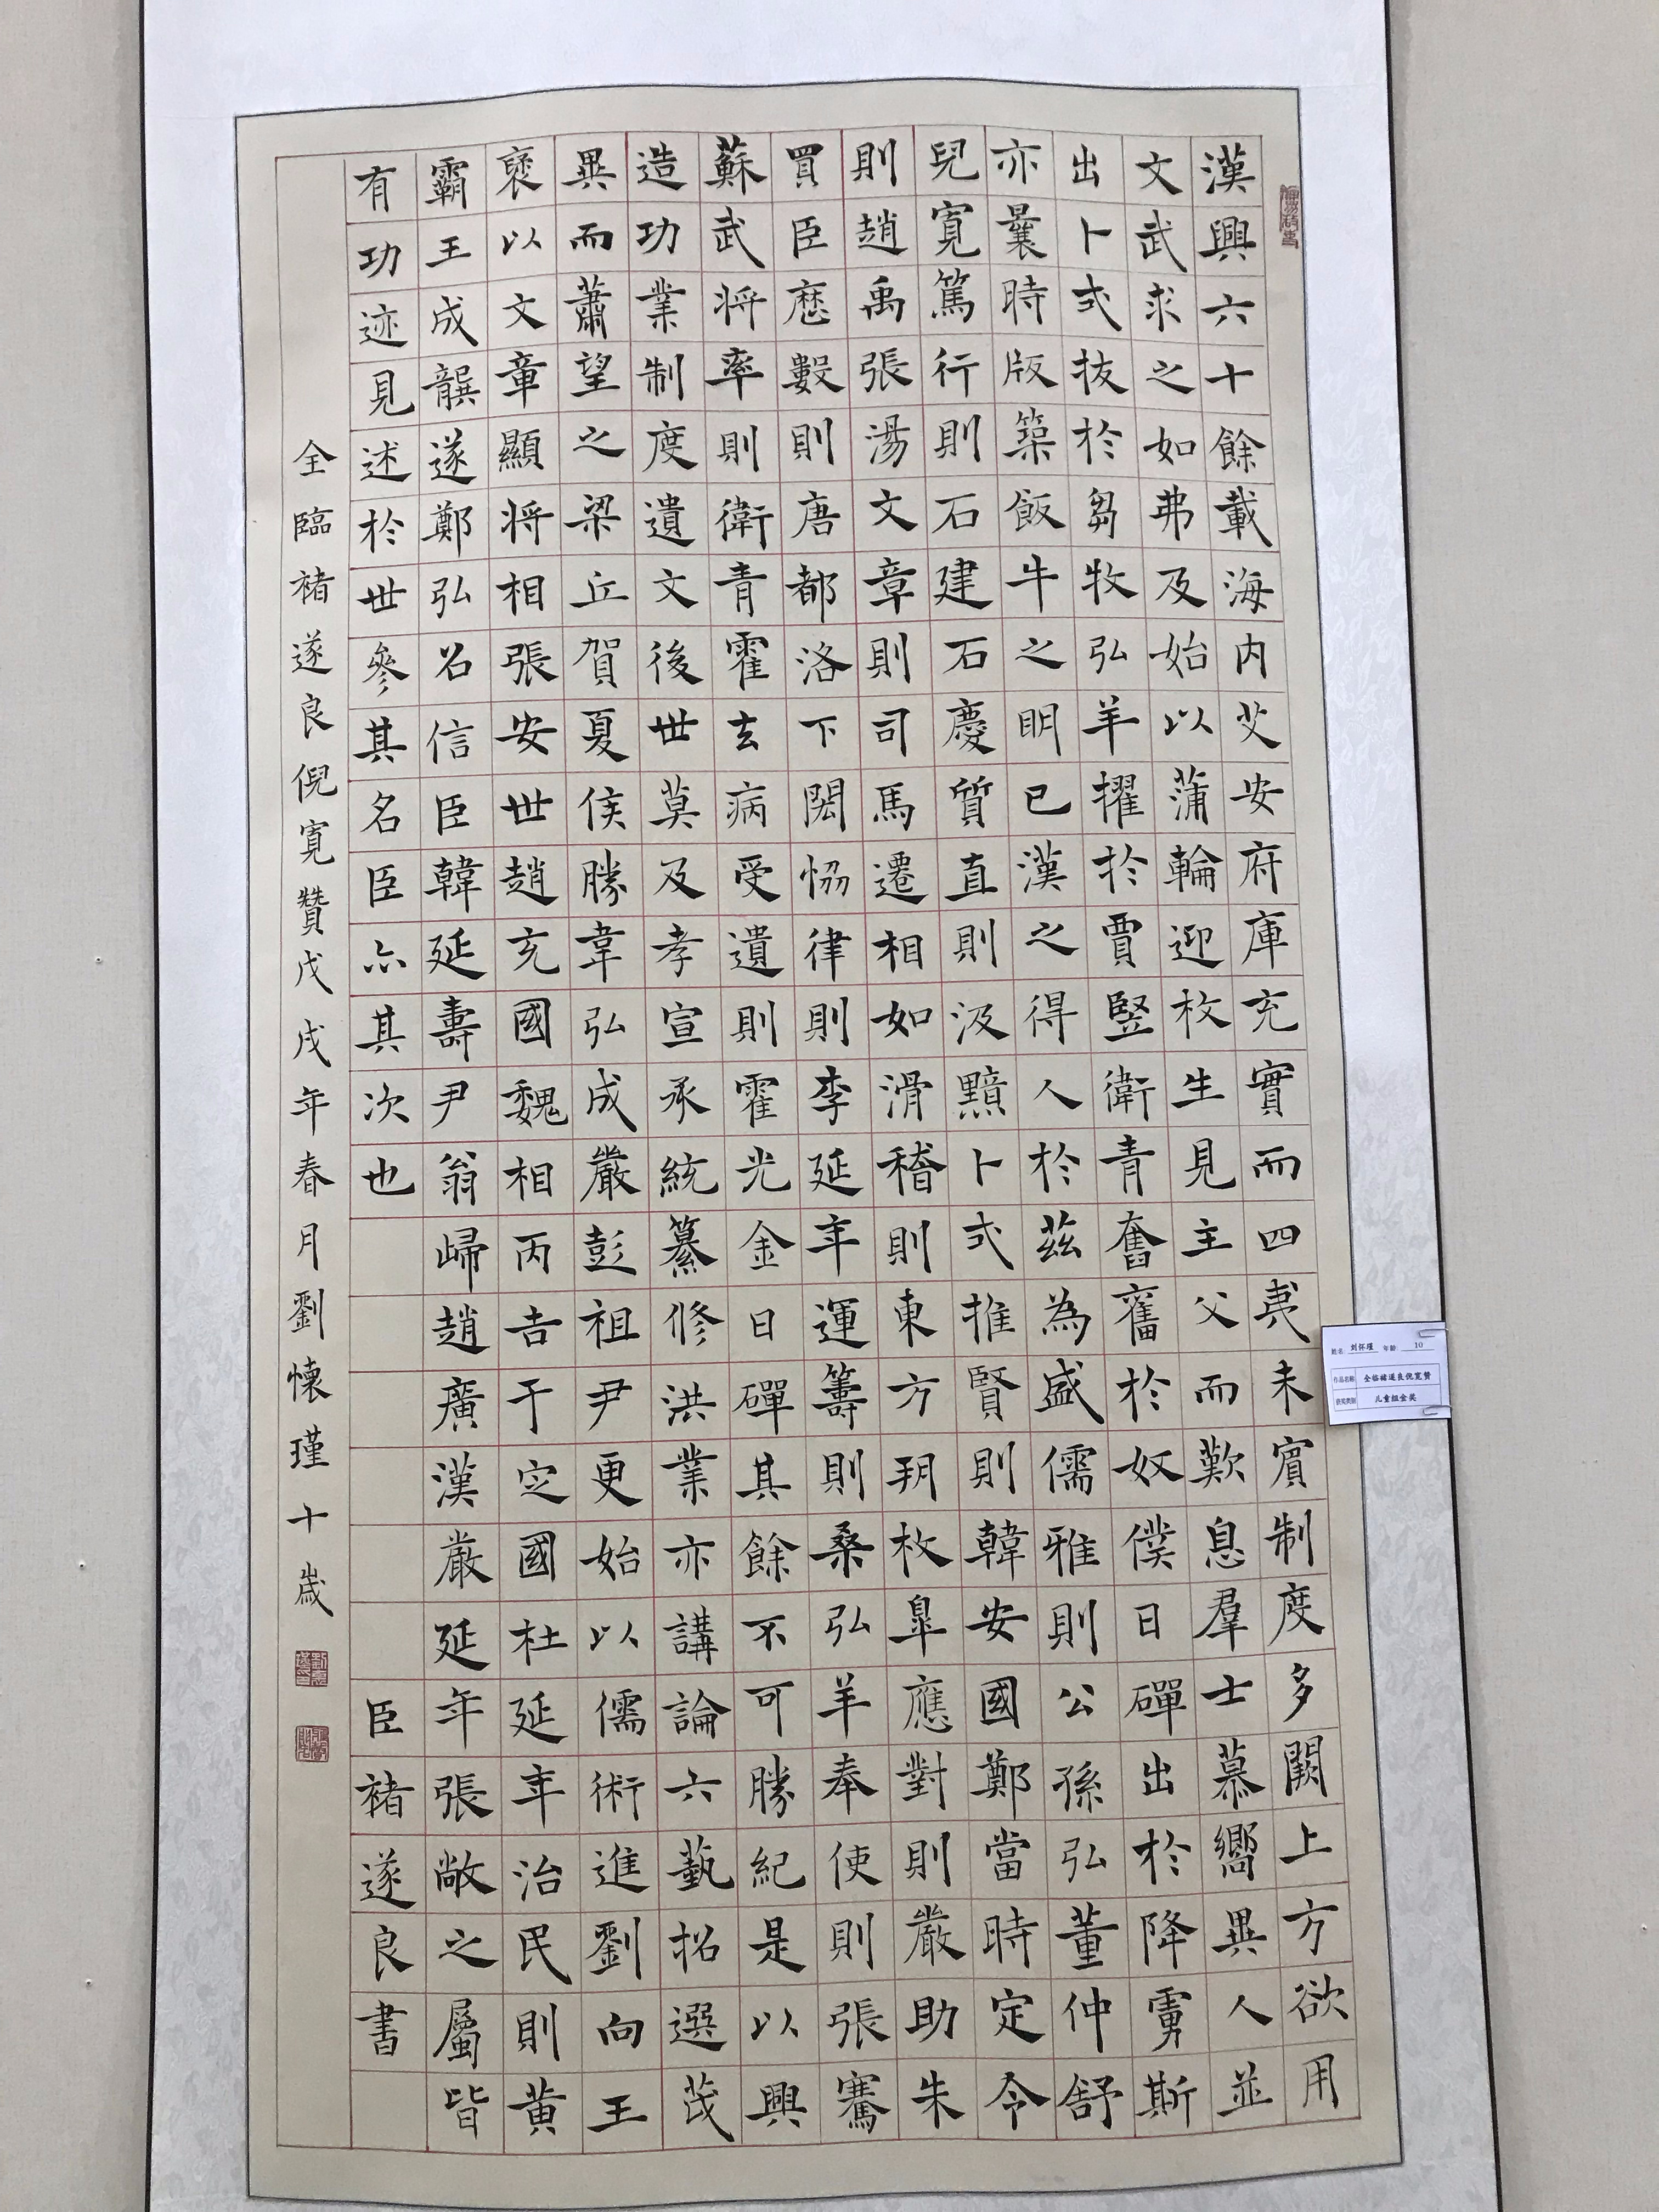 漢興六十餘載海内艾安府庫充實而四夷未賓制度多闕上方欲用
文武求之如弗及始以蒲輪迎枚生見主父而歎息羣士慕嚮異人並
出卜式拔於芻牧弘羊擢於賈豎衛青奮奮於奴僕日磾出於降虜斯
亦曩時版築飯牛之明已漢之得人於茲為盛儒雅則公孫弘董仲舒
兒寬篤行則石建石慶質直則汲黯卜式推賢則韓安國鄭當時定令
則趙禹張湯文章則司馬遷相如滑稽則東方朔枚皐應對則嚴助朱
買臣歷數則唐都洛下閎恊律則李延年運籌則桑弘羊奉使則張騫
蘇武將率則衛青霍去病受遺則霍光金日磾其餘不可勝紀是以興
造功業制度遺文後世莫及孝宣承統纂修洪業亦講論六藝招選茂
異而蕭望之梁丘賀夏侯勝韋弘成嚴彭祖尹更始以儒術進劉向王
褒以文章顯將相張安世趙充國魏相丙吉于定國杜延年治民則黃
霸王成龔遂鄭弘召信臣韓延壽尹翁歸趙廣漢嚴延年張敞之屬皆
有功迹見述於世參其名臣亦其次也
臣褚遂良書
全臨褚遂良倪寬贊戊戌年春月劉懷瑾十歲
姓名 刘怀瑾 年龄 10
作品名称 全临褚遂良倪宽赞
获奖类别 儿童组金奖